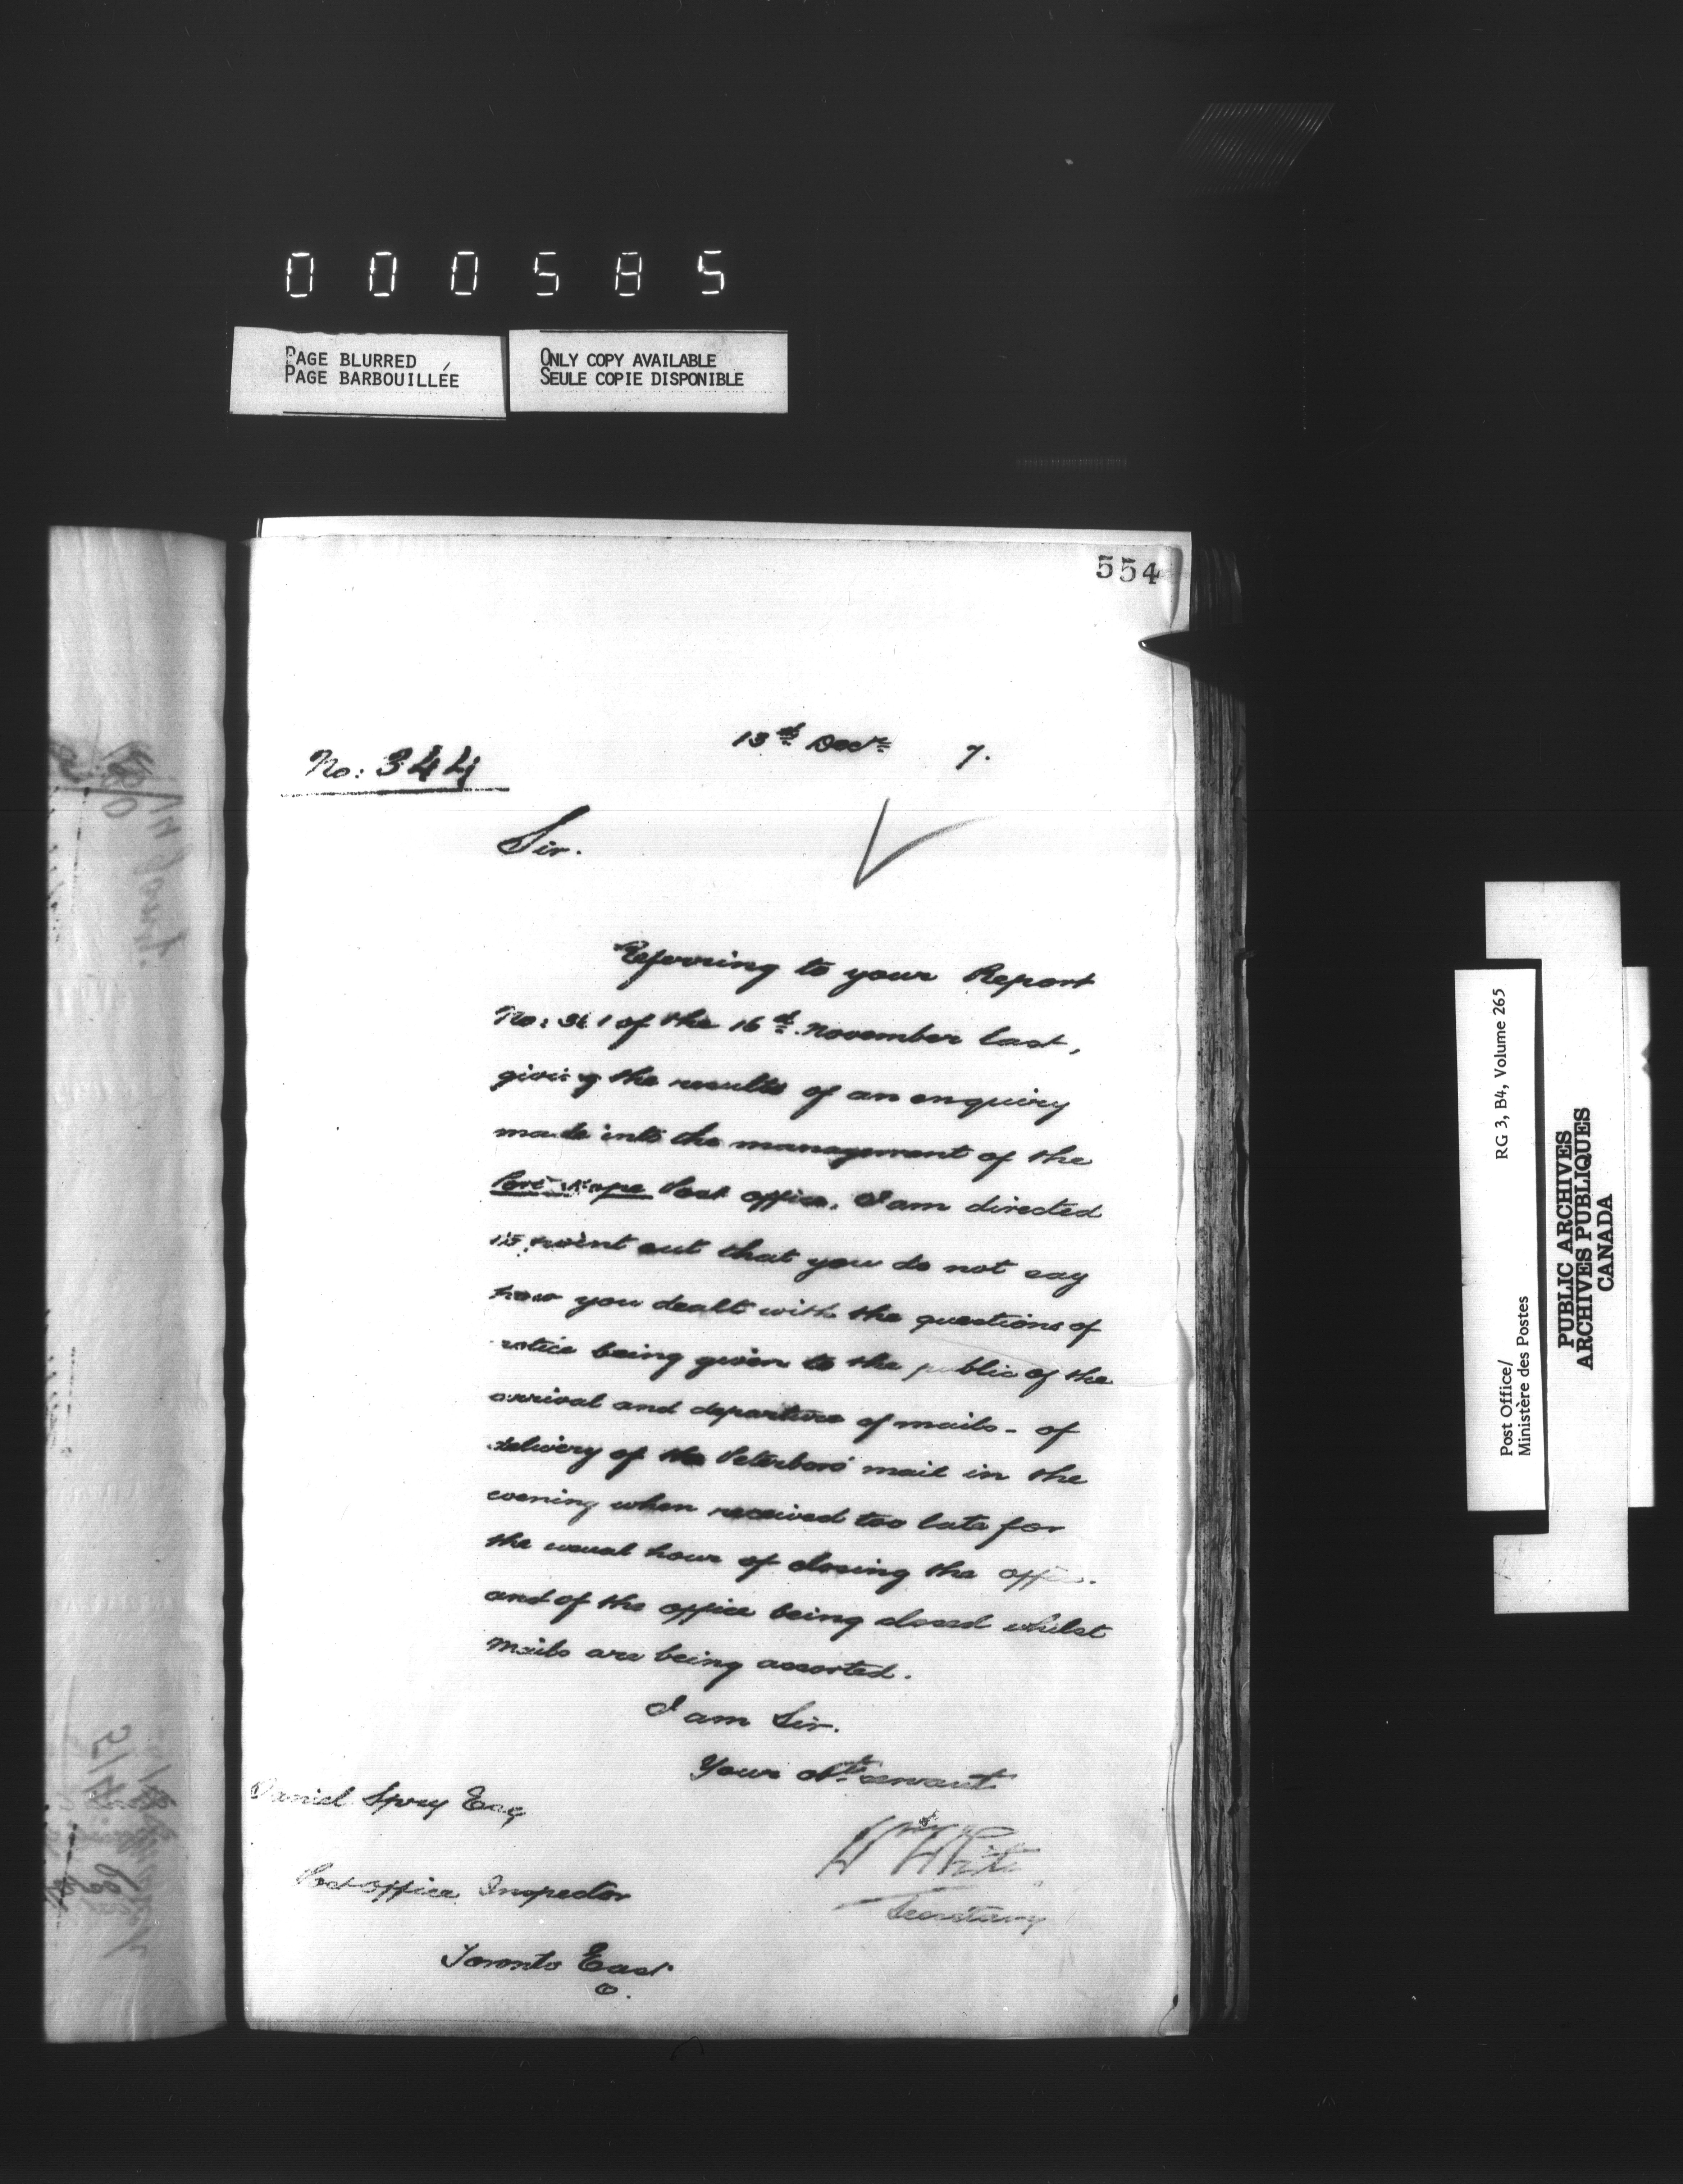 000585
PAGE BLURRED
PAGE BARBOUILLÉE
ONLY COPY AVAILABLE
SEULE COPIE DISPONIBLE
554
13th Decr 7.
No: 344
Sir.
Referring to your Report
No: 361 of the 16th November last,
giving the results of an enquiry
made into the management of the
Port Hope Post office, I am directed
to point out that you do not say
how you dealt with the questions of
notice being given to the public of the
arrival and departure of mails - of
delivery of the Peterboro' mail in the
evening when received too late for
the usual hour of closing the office.
and of the office being closed whilst
mails are being assorted.
I am Sir.
Your obt. servant
Wm White
Secretary
Daniel Spry Esq
Post office Inspector
Toronto East
O.
Post Office/
Ministère des Postes
RG 3, B4, Volume 265
PUBLIC ARCHIVES
ARCHIVES PUBLIQUES
CANADA